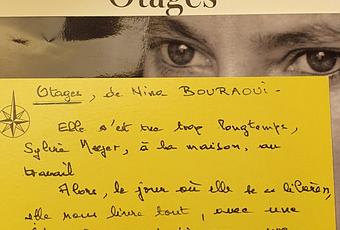 Otages
Otages, de Nina BOURAOUI -
Elle s'est tue trop longtemps,
Sylvie Meyer, à la maison, au
travail
Alors, le jour où elle se libère,
elle nous livre tout, avec une